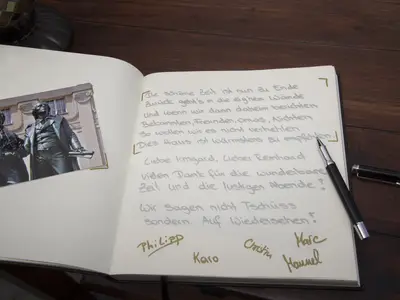 Die schöne Zeit ist nun zu Ende
Zurück geht's in die eig'nen Wände
und wenn wir dann daheim berichten
Bekannten, Freunden, Omas, Nichten
So wollen wir es nicht verhehlen
Dies Haus ist wärmstens zu empfehlen
Liebe Irmgard, Lieber Reinhard
vielen Dank für die wunderbare
Zeit und die lustigen Abende!
Wir sagen nicht Tschüss
sondern Auf Wiedersehen!
Philipp
Karo
Cristin
Marc
Manuel